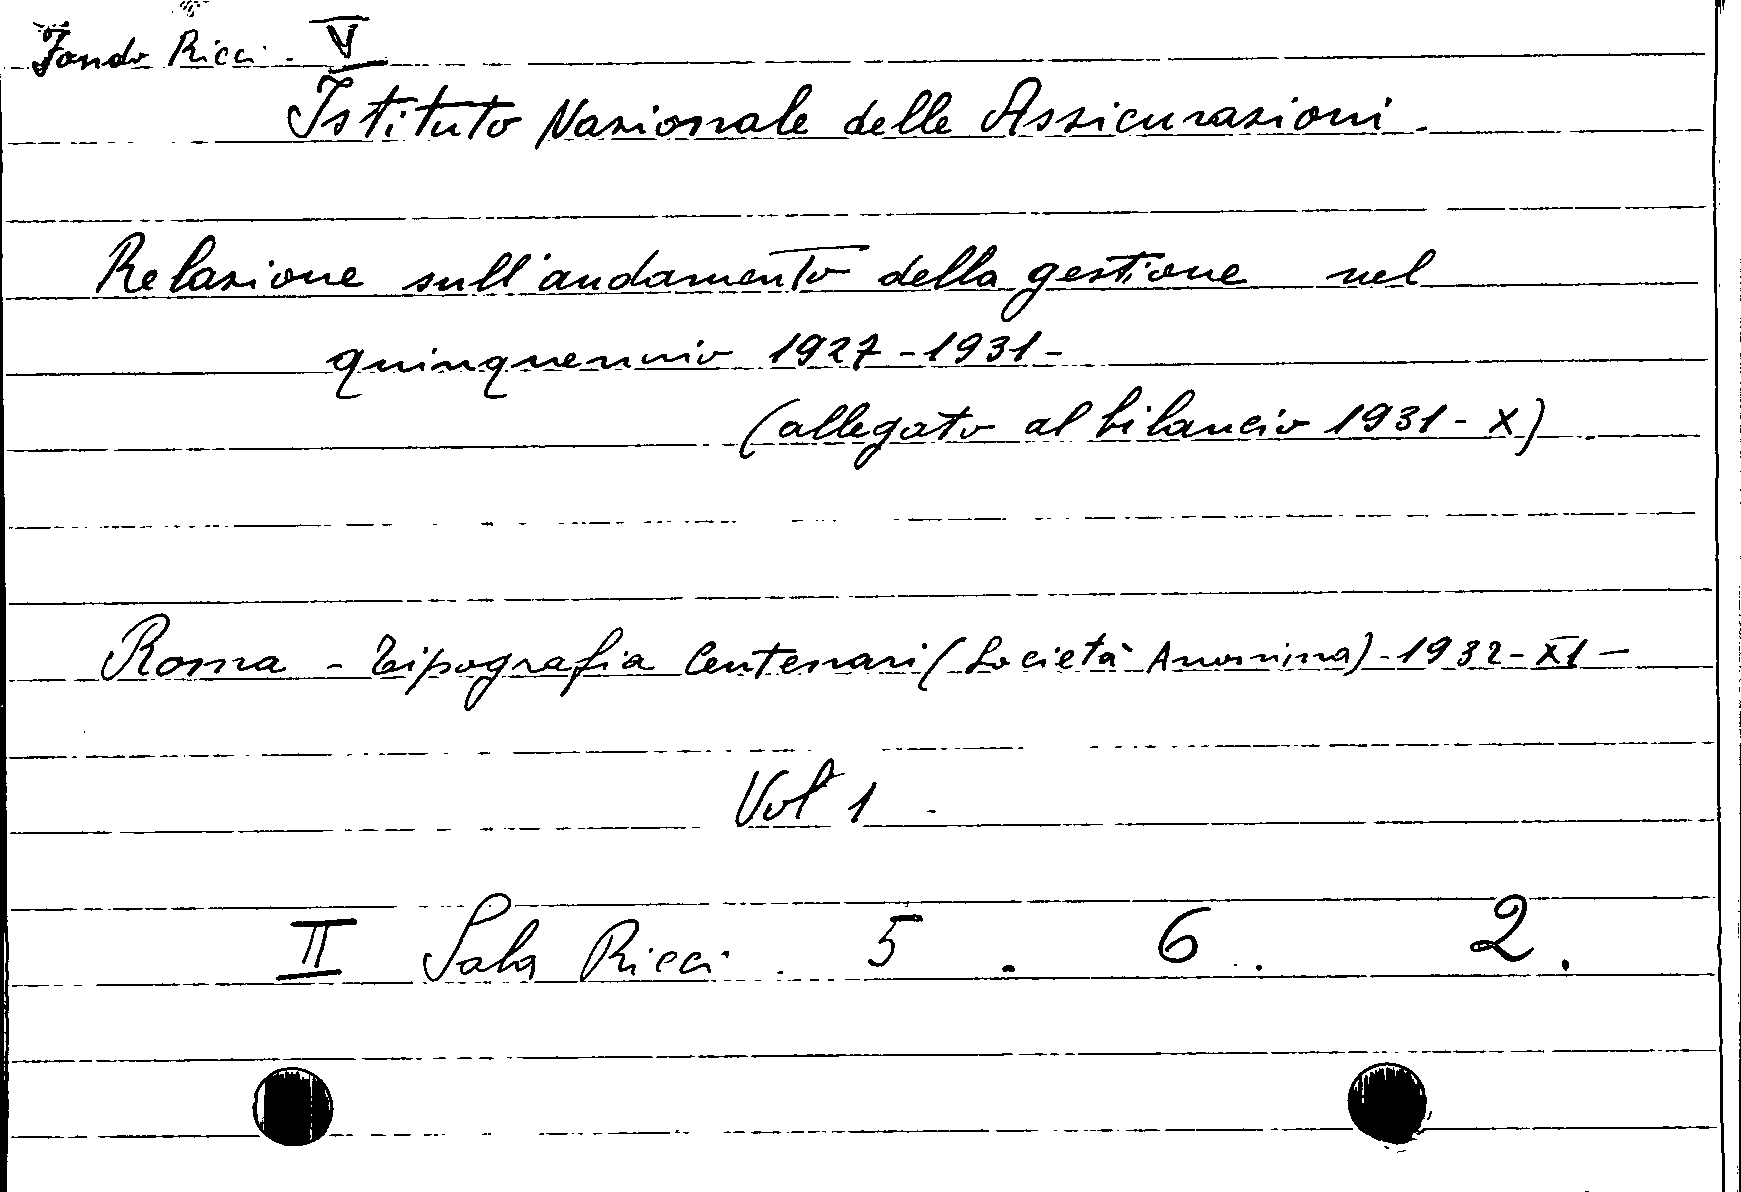 Fondo Ricci - V
Istituto Nazionale delle Assicurazioni.
Relazione sull'andamento della gestione nel
quinquennio 1927-1931-
(allegato al bilancio 1931-X)
Roma - Tipografia Centenari (Società Anonima)-1932-XI-
Vol 1
II Sala Ricci. 5. 6. 2.